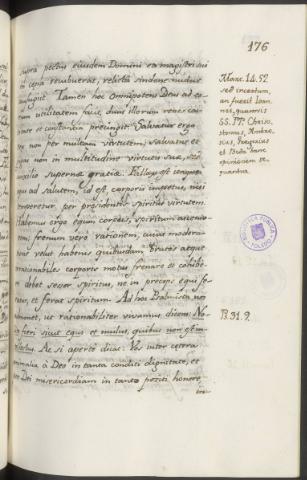 176
supra pectus eiusdem Domini ac magistri sui
in cœna recubuerat, relicta sindone nudus
aufugit. Tamen hoc omnipotens Deus ad eo-
rum utilitatem fuit, dum illorum
et constantia præcingit. Salvatur ergo
non per multam virtutem, salvatur et
non in multitudine virtutis suæ, sed
auxilio supernæ gratiæ. Fallax est
equus ad salutem, id est, corporis impetus, nisi
per præsidentis spiritus virtutem.
Habemus ergo equum corporis, spiritum
frenum vero rationem, cuius modera-
velut habenis quibusdam brutos atque
irrationabiles corporis motus frenare et cohibe-
re debet sessor spiritus, ne in præceps equi fe-
ratur, et ferat spiritum. Ad hoc Psalmista nos
monet, ut rationabiliter vivamus dicens: No-
lite fieri sicut equus et mulus, quibus non est in-
tellectus. Ac si aperte dicat: Vos inter cetera
animalia a Deo in tanta conditi dignitate, et
per Dei misericordiam in tanto positi honore
Marc. 14. 52
sed incertum,
an fuerit Ioan-
nes, quamvis
SS. PP. Chriso-
stomus, Ambro-
sius, Gregorius
et Beda hanc
opinionem se-
quantur.
BIBLIOTECA PUBLICA
TOLEDO
Ps. 31. 9.